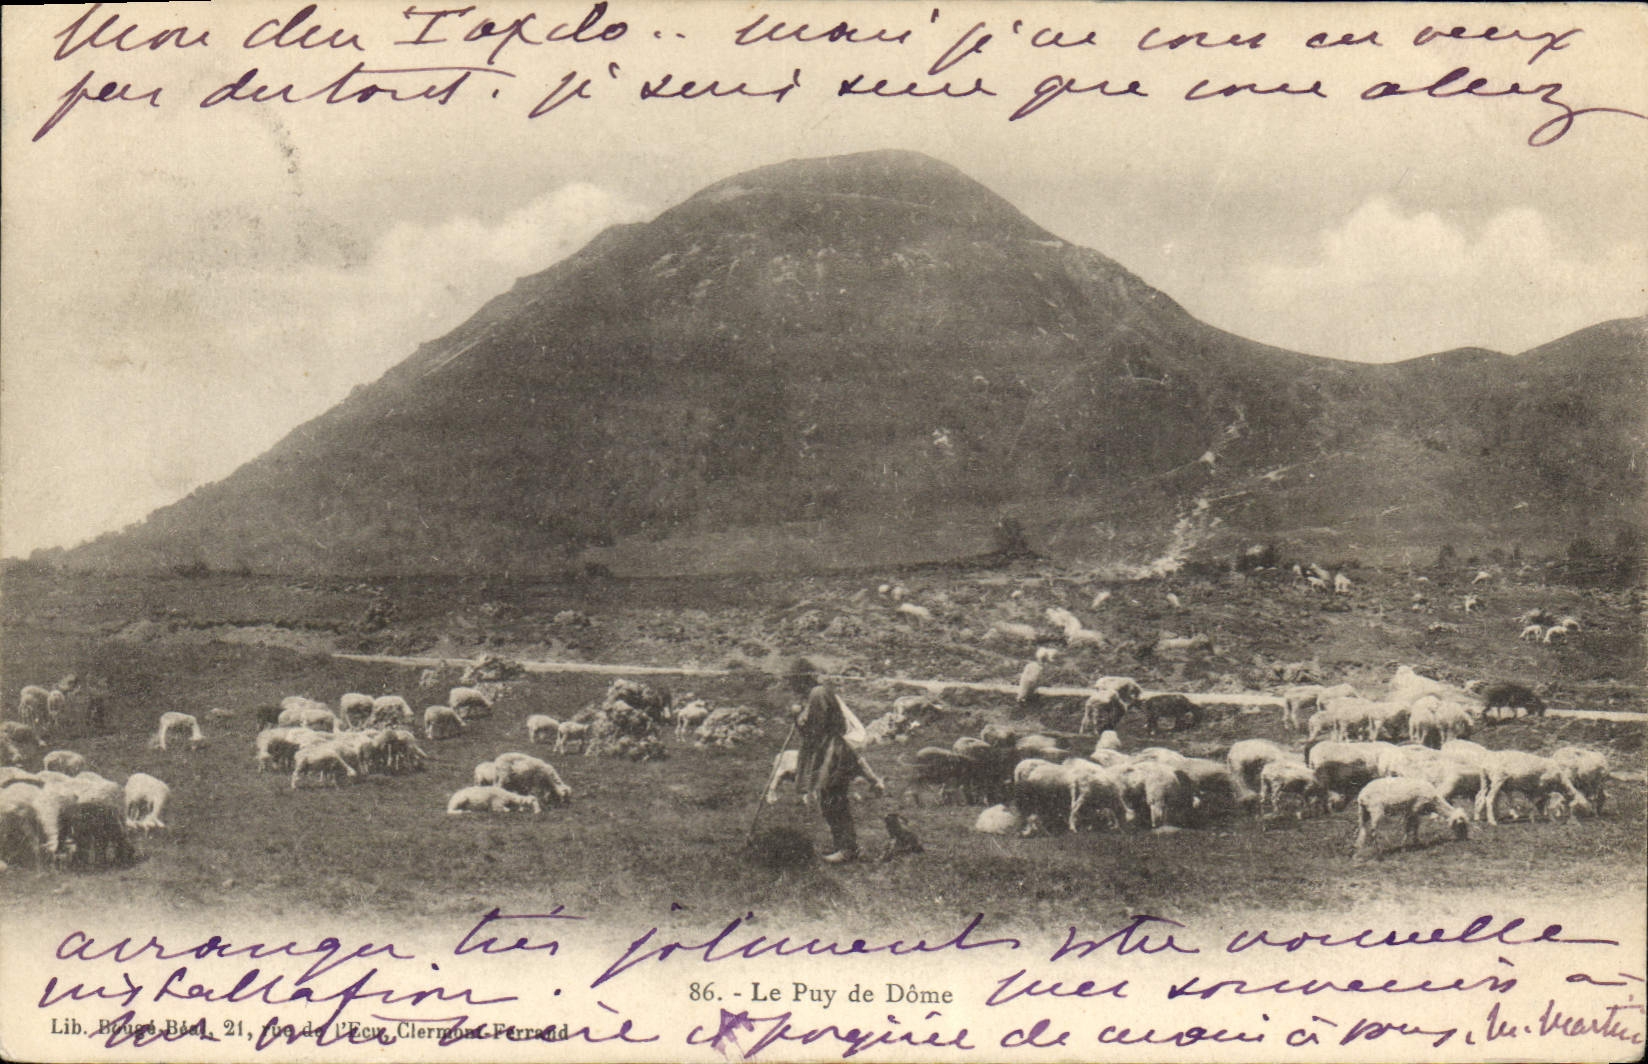 mais je ne vous en veux
pas du tout. je suis sûre que vous allez
arranger très joliment votre nouvelle
installation. mes souvenirs à
86. - Le Puy de Dôme
Lib. Bougé-Béal, 21, rue de l'Ecu, Clermont-Ferrand
votre et poignée de main à vous. M. Martin